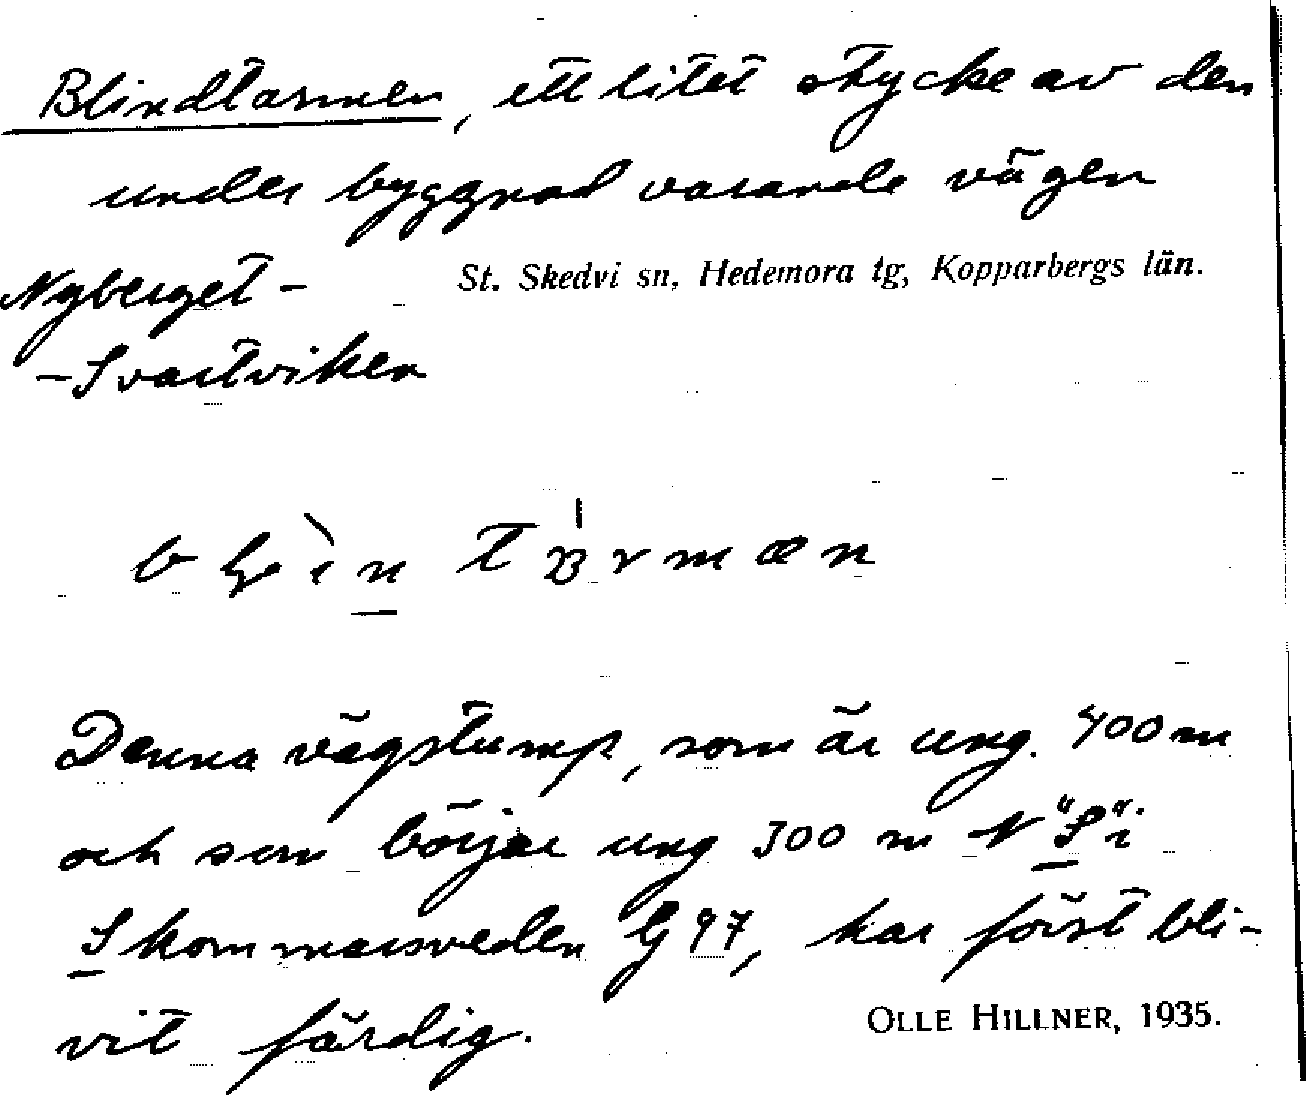 Blindtarmen, ett litet stycke av den
under byggnad varande vägen
Nyberget -
St. Skedvi sn, Hedemora tg, Kopparbergs län.
- Svartviken
Denna vägstump, som är ung. 400 m
och som börjar ung 300 m N "S" i
Skommarsveden G 97, har först bli-
vit färdig.
OLLE HILLNER, 1935.